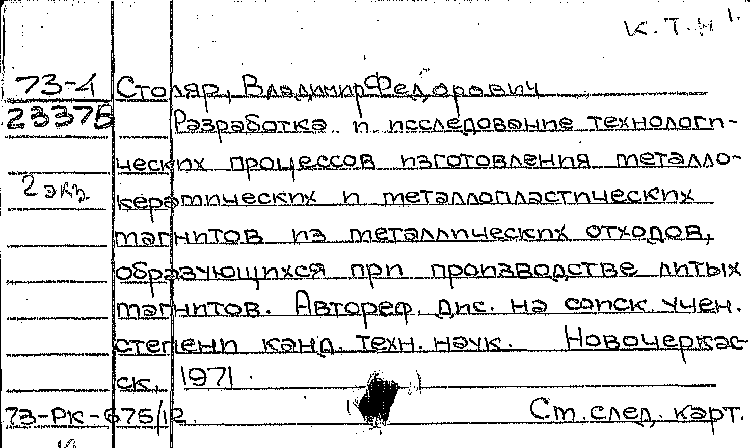 К.Т.Н 1.
73-4 Столяр, Владимир Федорович
23375 Разработка и исследование технологи-
ческих процессов изготовления металло-
2 экз. керамических и металлопластических
магнитов из металлических отходов,
образующихся при производстве литых
магнитов. Автореф. дис. на соиск. учен.
степени канд. техн. наук. Новочеркас-
ск, 1971.
73-РК-675/12 Ст. след. карт.